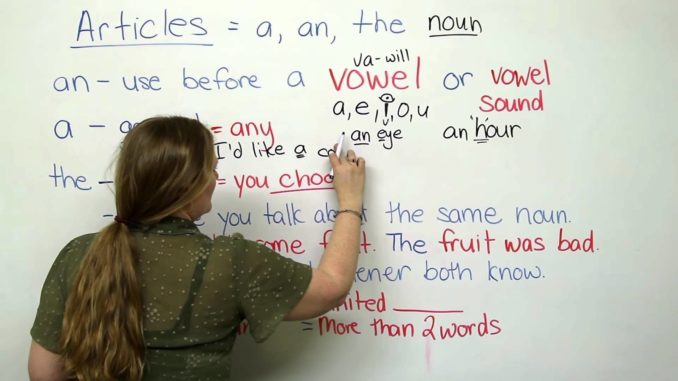 Articles = a, an, the noun
va-will
an - use before a vowel or vowel sound
a, e, i, o, u
an eye
an hour
a - = any
I'd like a
the - = you
you talk the same noun.
The fruit was bad.
both know.
= More than 2 words